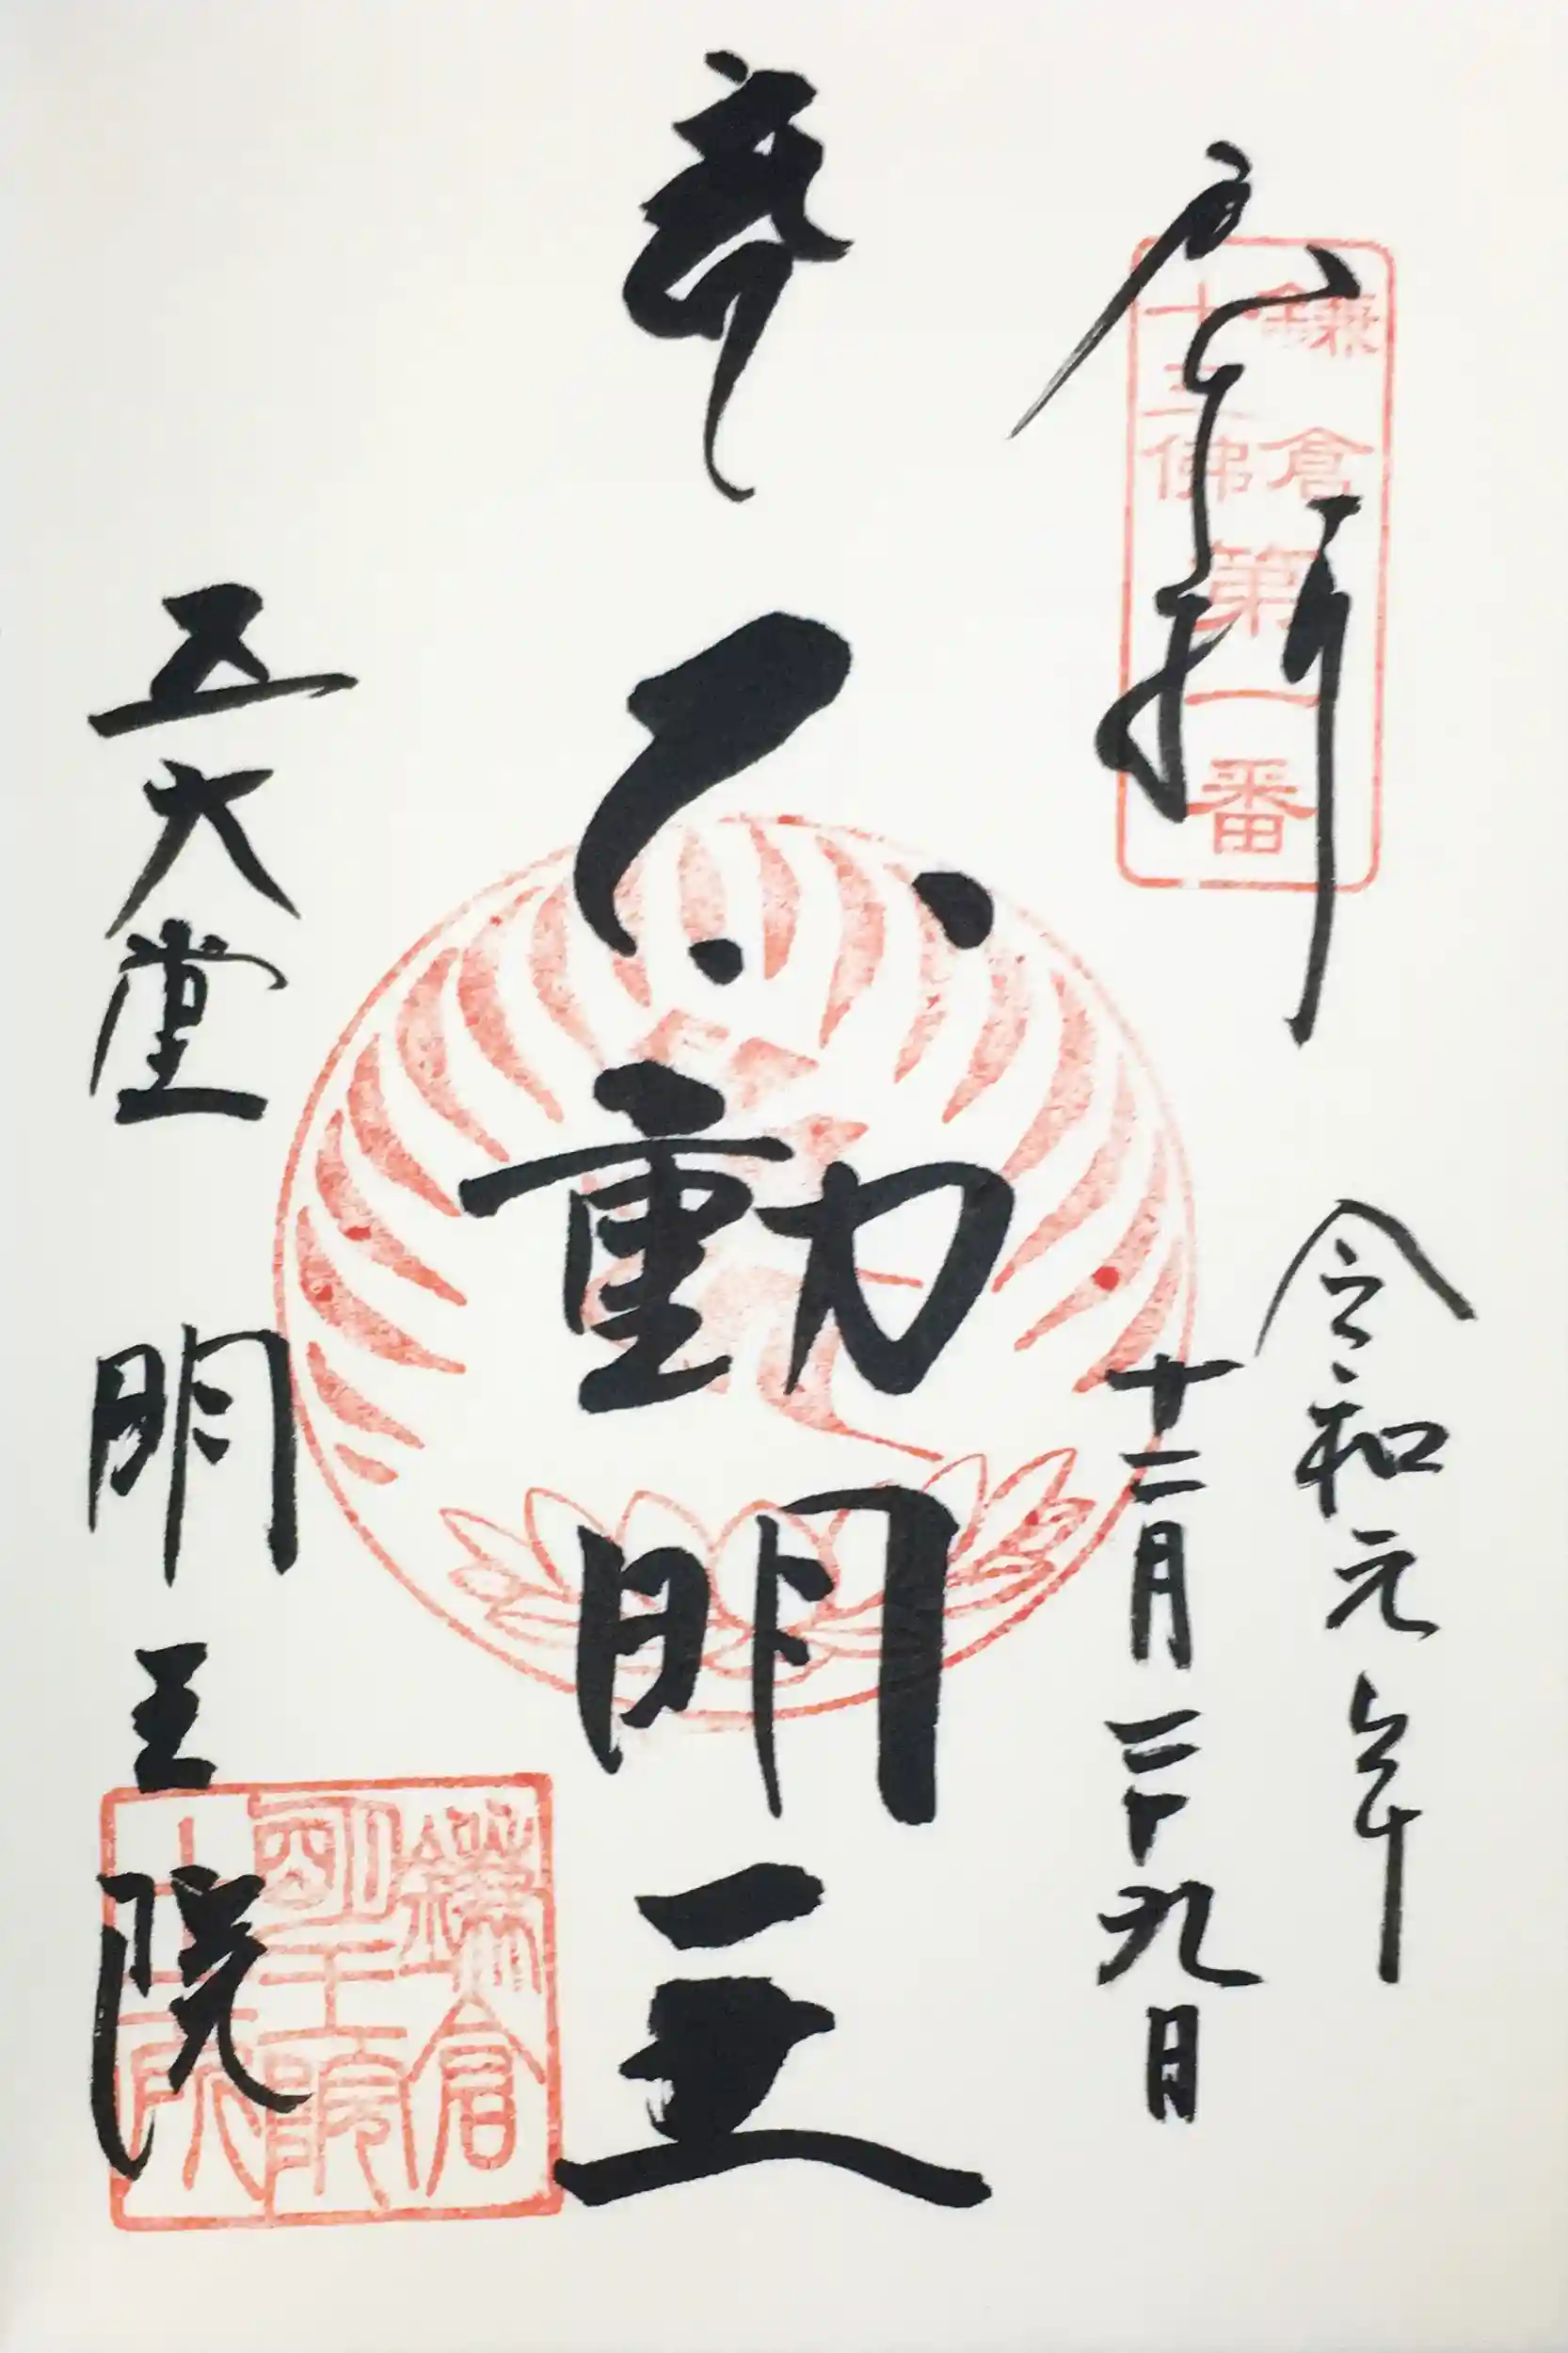 奉拝
鎌倉
十三佛
第一番
令和元年
十二月二十九日
奉
不動明王
五大堂
明王院
鎌倉
明王院